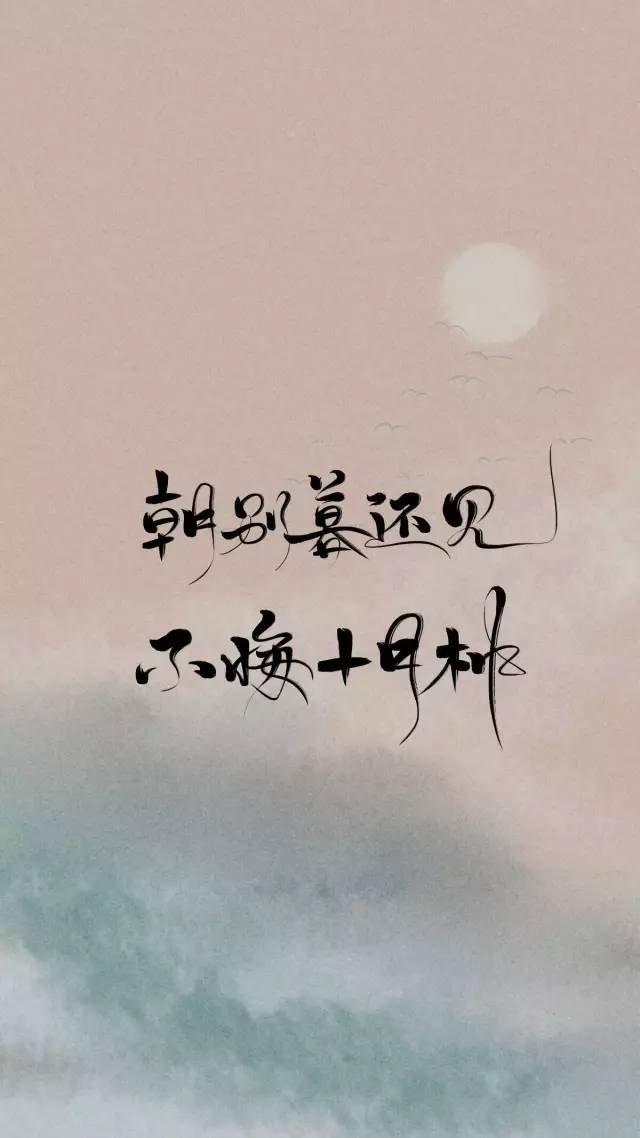 朝别暮还见
不悔十月桃